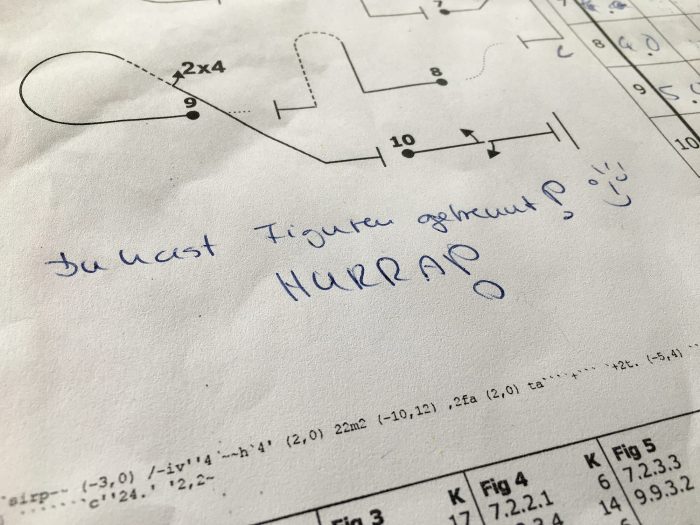 7
2x4
9
8
10
8 4.0
9
10
Du hast Figuren getrennt!
HURRA!
`sirp-~ (-3,0) /-iv''4`~~h`4' (2,0) 22m2 (-10,12) ,2fa (2,0) ta````+```+2t. (-5,4)
```````c''24.' '2,2~
Fig 3 K Fig 4 K Fig 5
17 7.2.2.1 6 7.2.3.3
14 9.9.3.2